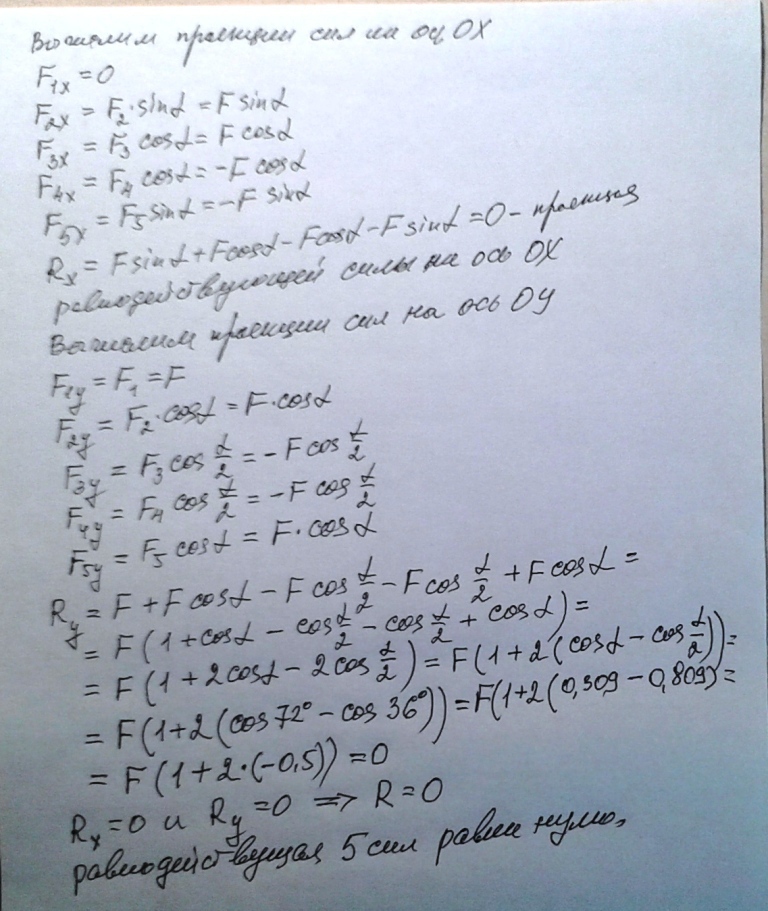 Вычислим проекции сил на ось OX
F₁ₓ = 0
F₂ₓ = F₂·sinα = F sinα
F₃ₓ = F₃ cosα = F cosα
F₄ₓ = F₄ cosα = -F cosα
F₅ₓ = F₅ sinα = -F sinα
Rₓ = F sinα + F cosα - F cosα - F sinα = 0 - проекция
равнодействующей силы на ось OX
Вычислим проекции сил на ось OY
F₁y = F₁ = F
F₂y = F₂·cosα = F·cosα
F₃y = F₃ cos α/2 = -F cos α/2
F₄y = F₄ cos α/2 = -F cos α/2
F₅y = F₅ cosα = F·cosα
Ry = F + F cosα - F cos α/2 - F cos α/2 + F cosα =
= F(1 + cosα - cos α/2 - cos α/2 + cosα) =
= F(1 + 2cosα - 2cos α/2) = F(1 + 2(cosα - cos α/2)) =
= F(1 + 2(cos 72° - cos 36°)) = F(1+2(0,309 - 0,809) =
= F(1 + 2·(-0,5)) = 0
Rₓ = 0 и Ry = 0 ⇒ R = 0
равнодействующая 5 сил равна нулю,